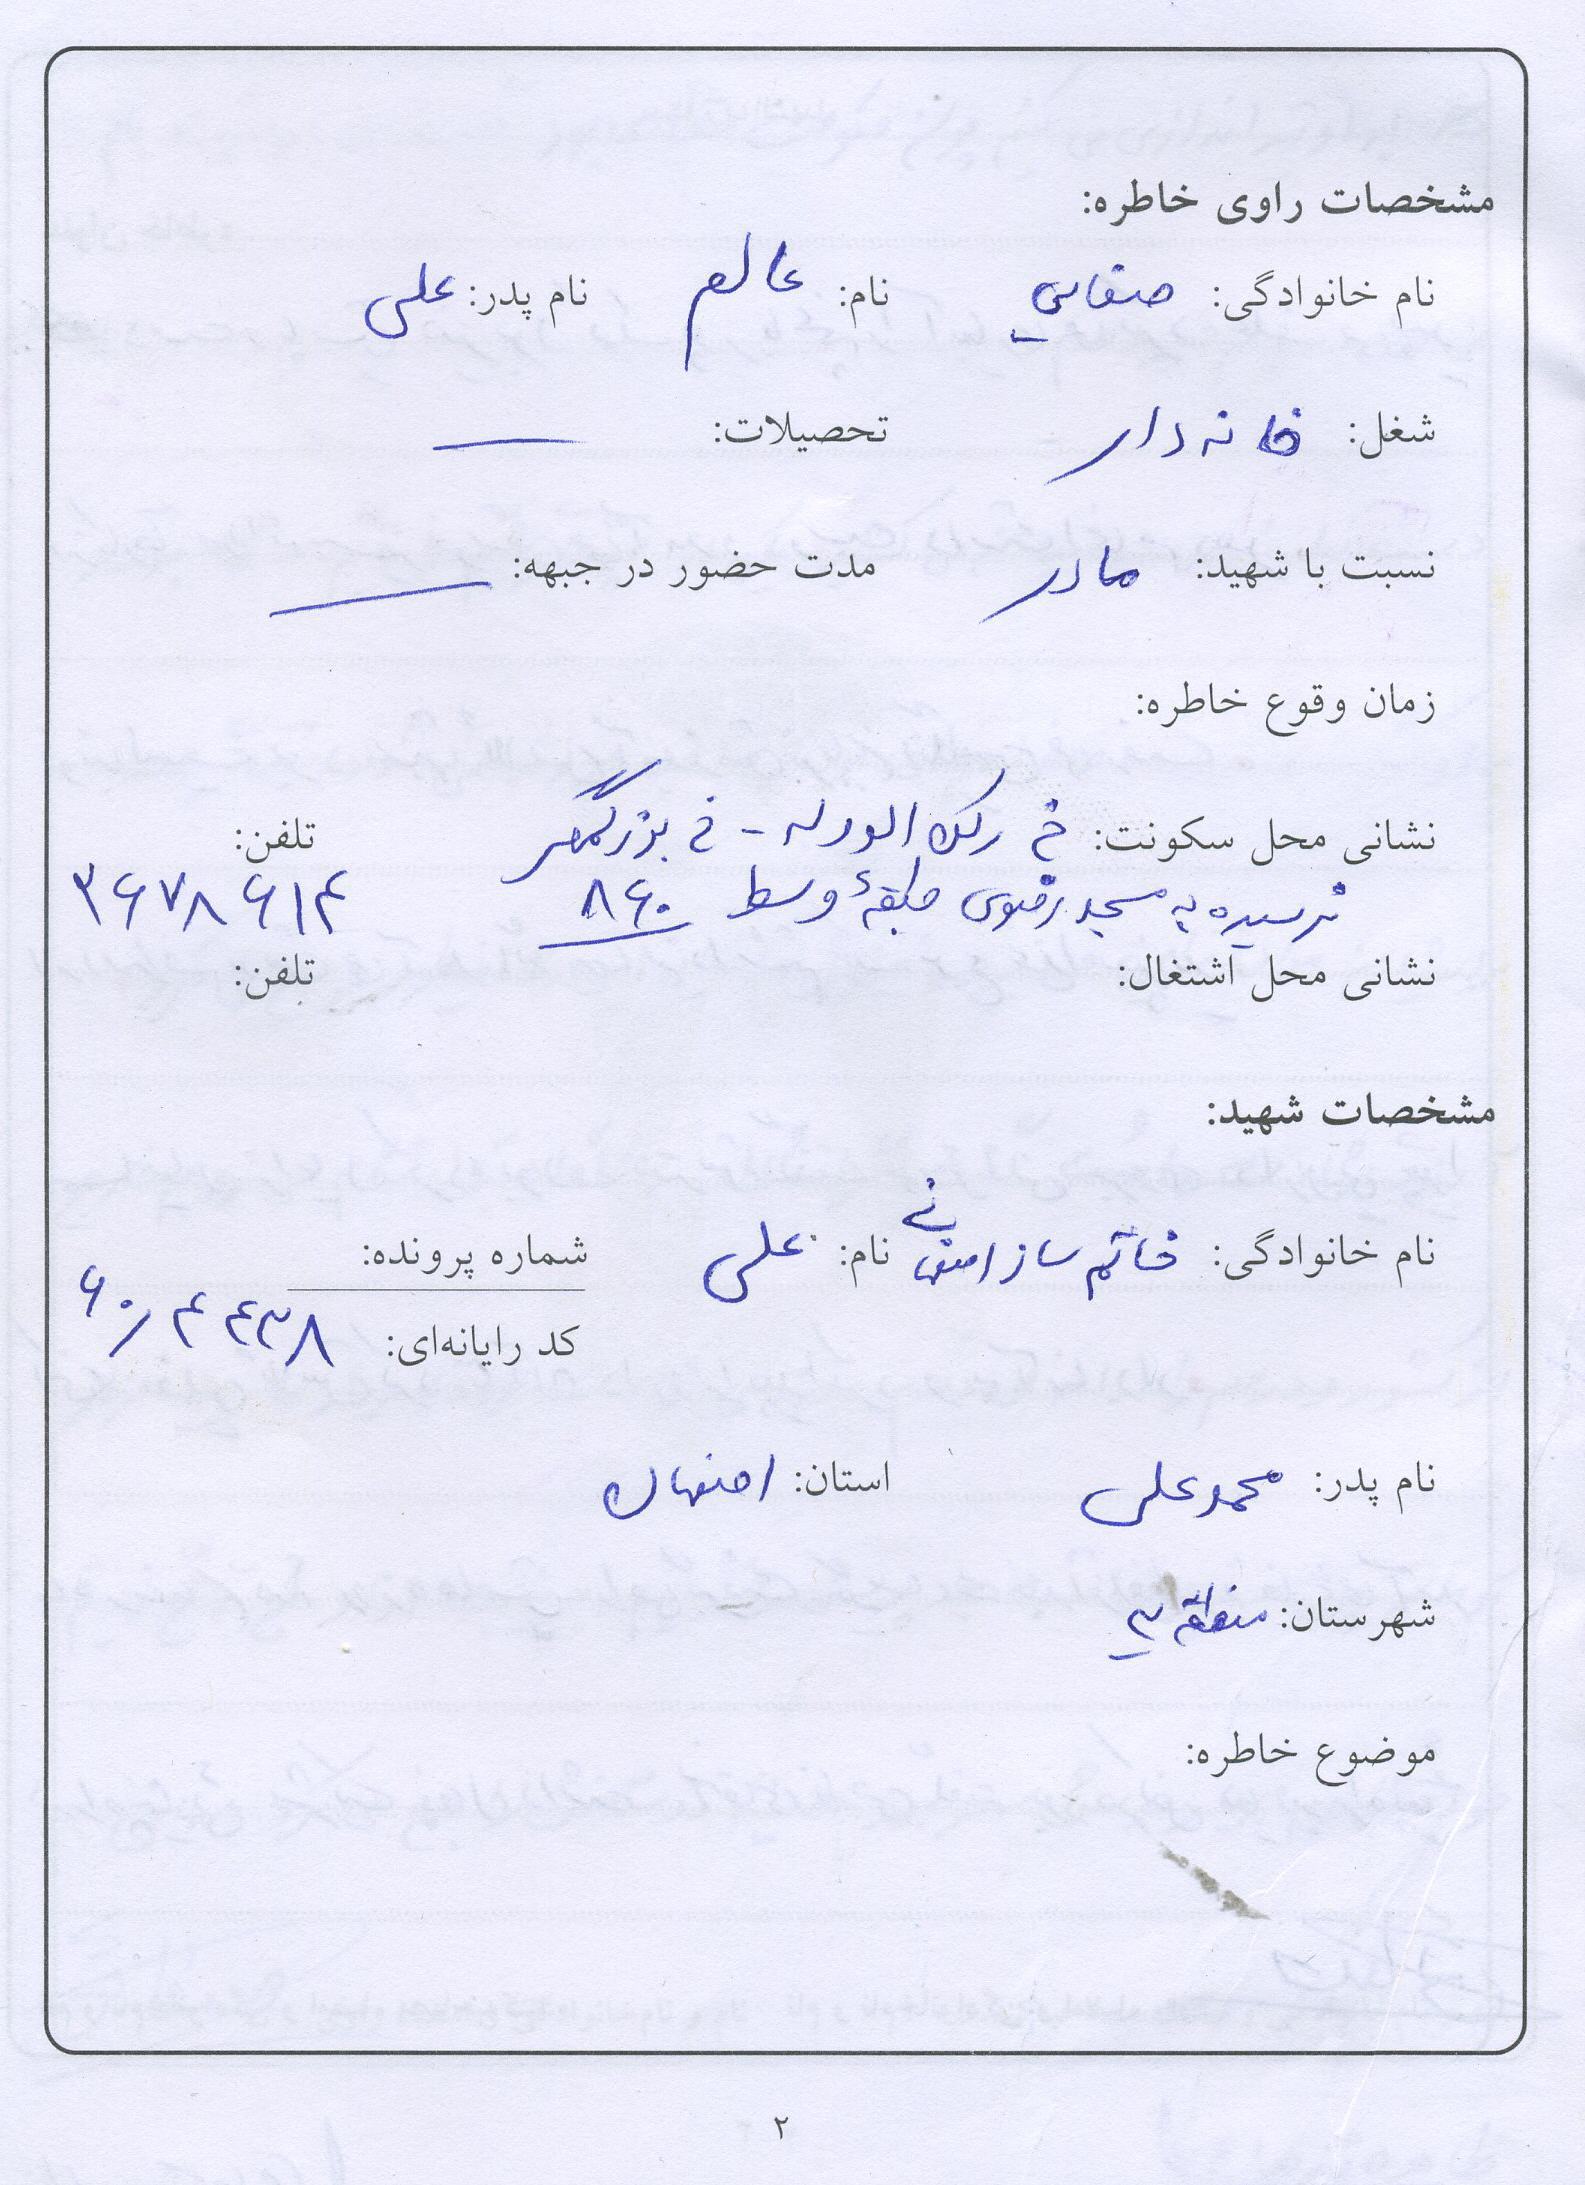 مشخصات راوی خاطره:
نام خانوادگی: صفایی نام: عالم نام پدر: علی
شغل: خانه دار تحصیلات: ـــ
نسبت با شهید: مادر مدت حضور در جبهه: ـــ
زمان وقوع خاطره:
نشانی محل سکونت: خ رکن الدوله - خ بزرگمهر تلفن:
نرسیده به مسجد رضوی طبقهٔ وسط ۸۶۰ ۳۶۷۸۶۱۴
نشانی محل اشتغال: تلفن:
مشخصات شهید:
نام خانوادگی: خاتم ساز اصفهانی نام: علی شماره پرونده:
کد رایانه‌ای: ۶۰/۴۴۳۸
نام پدر: محمدعلی استان: اصفهان
شهرستان: منطقه ۳
موضوع خاطره:
۲